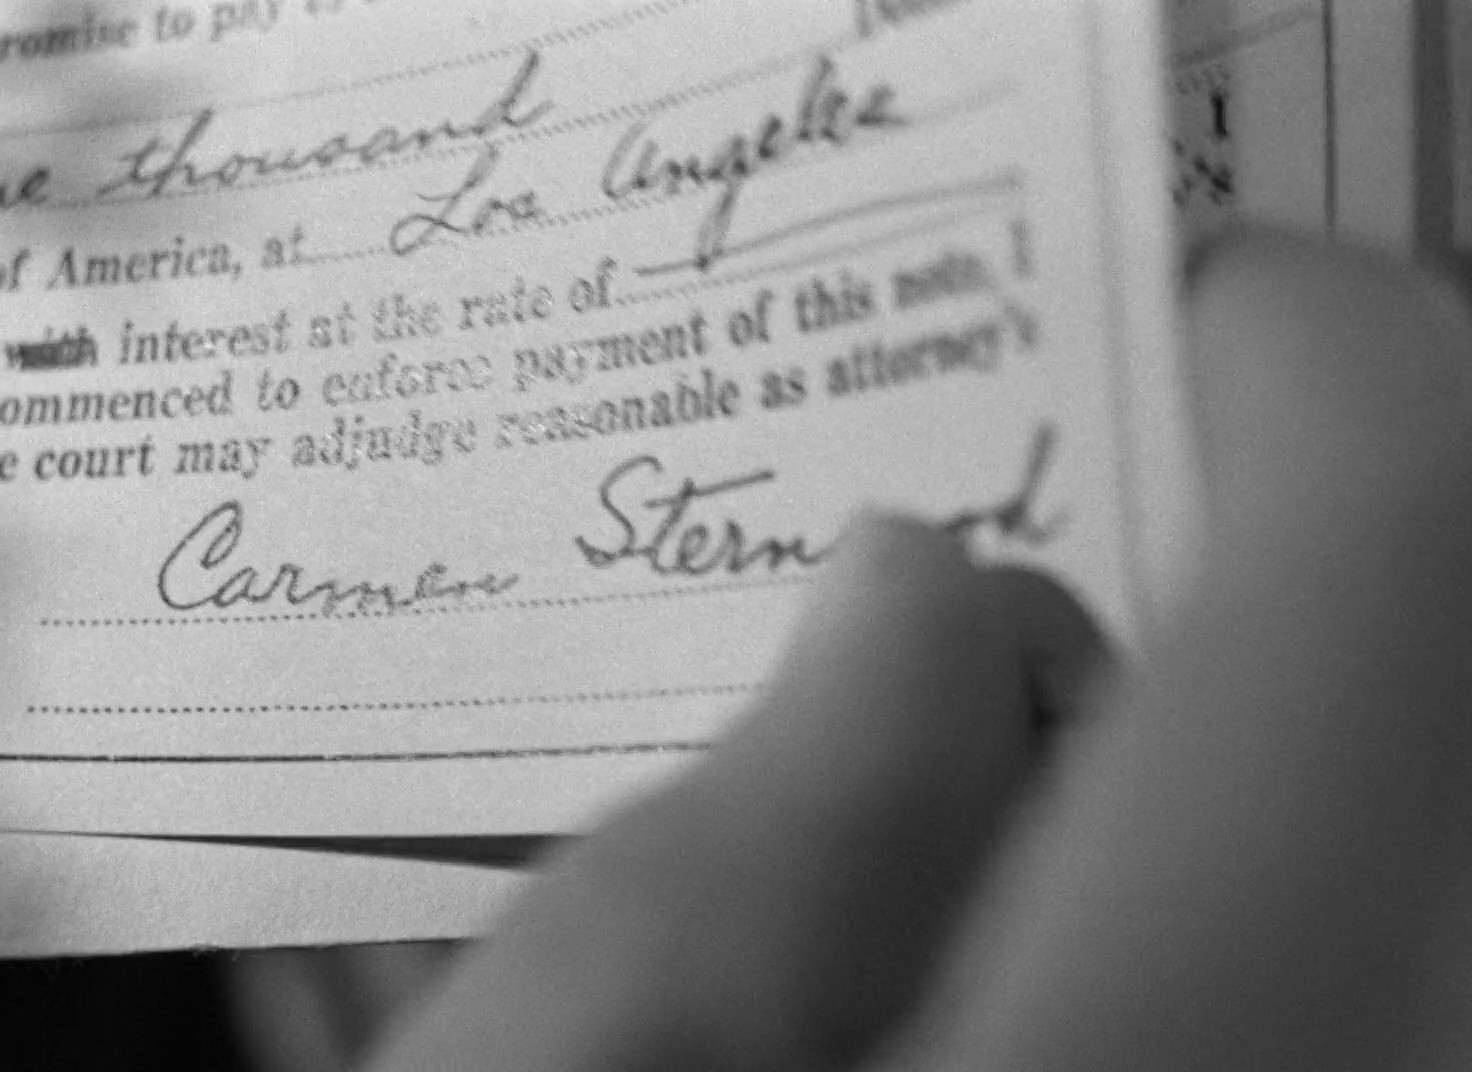 romise to pay
thousand
of America, at Los Angeles
with interest at the rate of
ommenced to enforce payment of this note, I
e court may adjudge reasonable as attorney's
Carmen Stern od